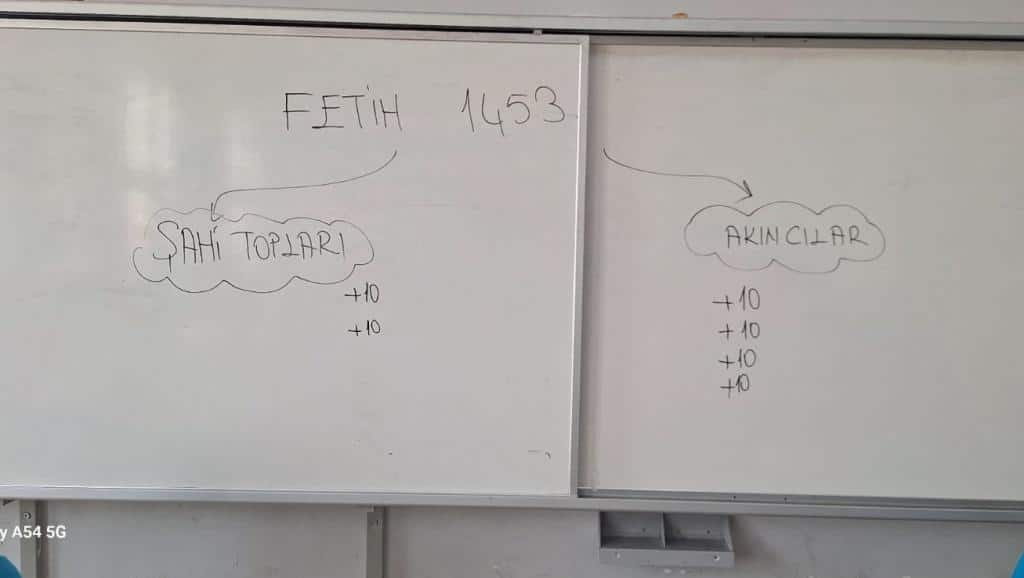 FETİH 1453
ŞAHİ TOPLARI
+10
+10
AKINCILAR
+10
+10
+10
+10
y A54 5G